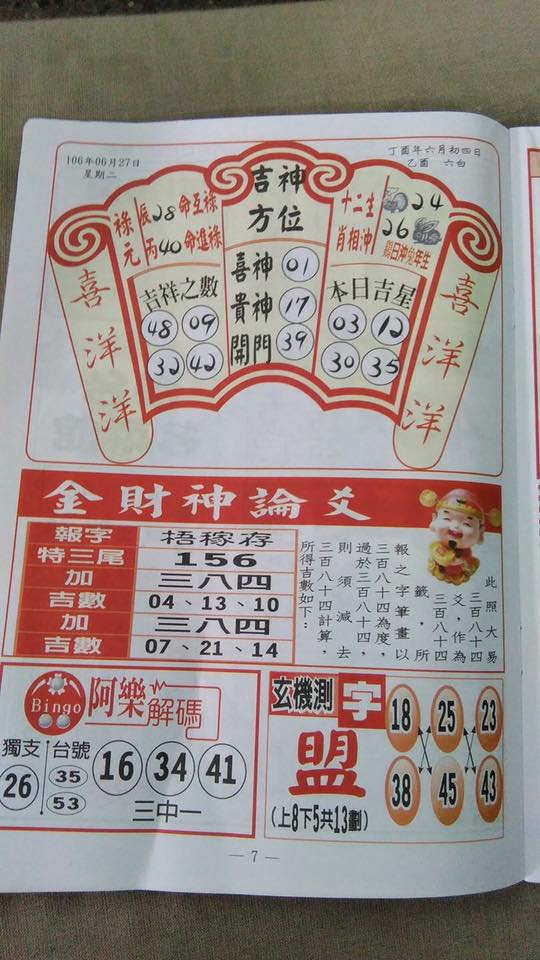 106年06月27日
星期二
丁酉年六月初四日
乙酉 六白
喜洋洋
祿元
辰28命互祿
丙40命進祿
吉祥之數
48 09
32 42
吉神
方位
喜神 01
貴神 17
開門 39
十二生
肖相沖
24
26
雞日沖兔年生
本日吉星
03 12
30 35
喜洋洋
金財神論爻
報字 梧稼存
特三尾 156
加 三八四
吉數 04、13、10
加 三八四
吉數 07、21、14
此照大易
三百八十四
爻，作為
三百八十四
籤，所
報之字筆畫以
三百八十四為度，
過於三百八十四，
則須減去
三百八十四計算，
所得吉數如下：
Bingo
阿樂解碼
獨支
26
台號
35
53
16 34 41
三中一
玄機測字
盟
(上8下5共13劃)
18 25 23
38 45 43
— 7 —